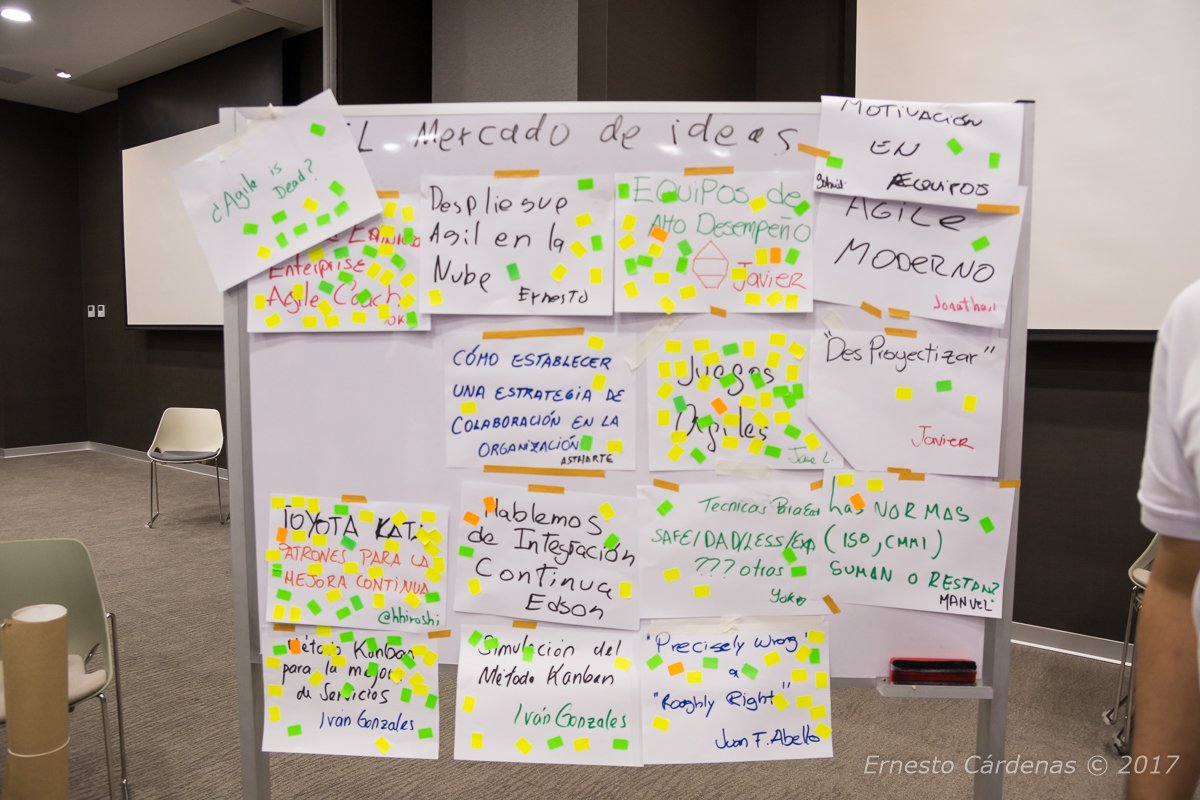 L Mercado de ideas
¿Agile is
Dead?
Enterprise
Agile Coach
Despliegue
Agil en la
Nube
Ernesto
EQUIPOS de
Alto Desempeño
Javier
MOTIVACIÓN
EN
EQUIPOS
AGILE
MODERNO
Jonathan
CÓMO ESTABLECER
UNA ESTRATEGIA DE
COLABORACIÓN EN LA
ORGANIZACIÓN
ASTHARTE
Juegos
Agiles
Jose L.
"DesProyectizar"
Javier
TOYOTA KATA
PATRONES PARA LA
MEJORA CONTINUA
@hhiroshi
Hablemos
de Integración
Continua
Edson
Tecnicas
SAFE/DAD/LESS/EXP
??? otros
Yoko
Las NORMAS
(ISO, CMMI)
SUMAN O RESTAN?
MANUEL
Método Kanban
para la mejora
de Servicios
Iván Gonzales
Simulación del
Método Kanban
Iván Gonzales
"Precisely Wrong"
a
"Roughly Right"
Juan F. Abello
Ernesto Cárdenas © 2017